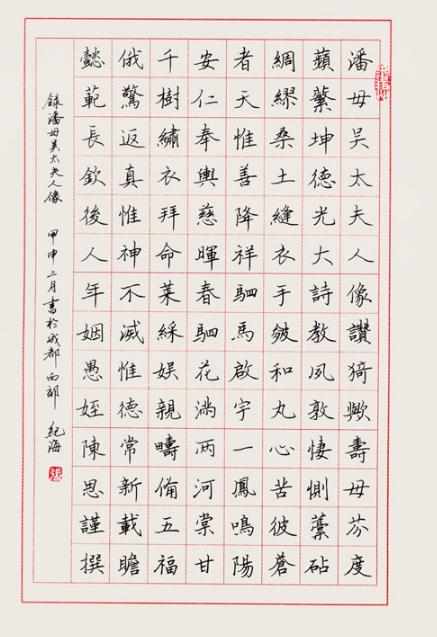 潘母吳太夫人像讚猗歟壽母芬度
蘋蘩坤德光大詩教夙敦悽惻藁砧
綢繆桑土縫衣手皴和丸心苦彼蒼
者天惟善降祥駟馬啟宇一鳳鳴陽
安仁奉輿慈暉春駟花滿兩河棠甘
千樹繡衣拜命萊綵娱親疇備五福
俄驚返真惟神不滅惟德常新載瞻
懿範長欽後人年姻愚姪陳思謹撰
錄潘母吳太夫人像 甲申二月書於成都西部 紀海